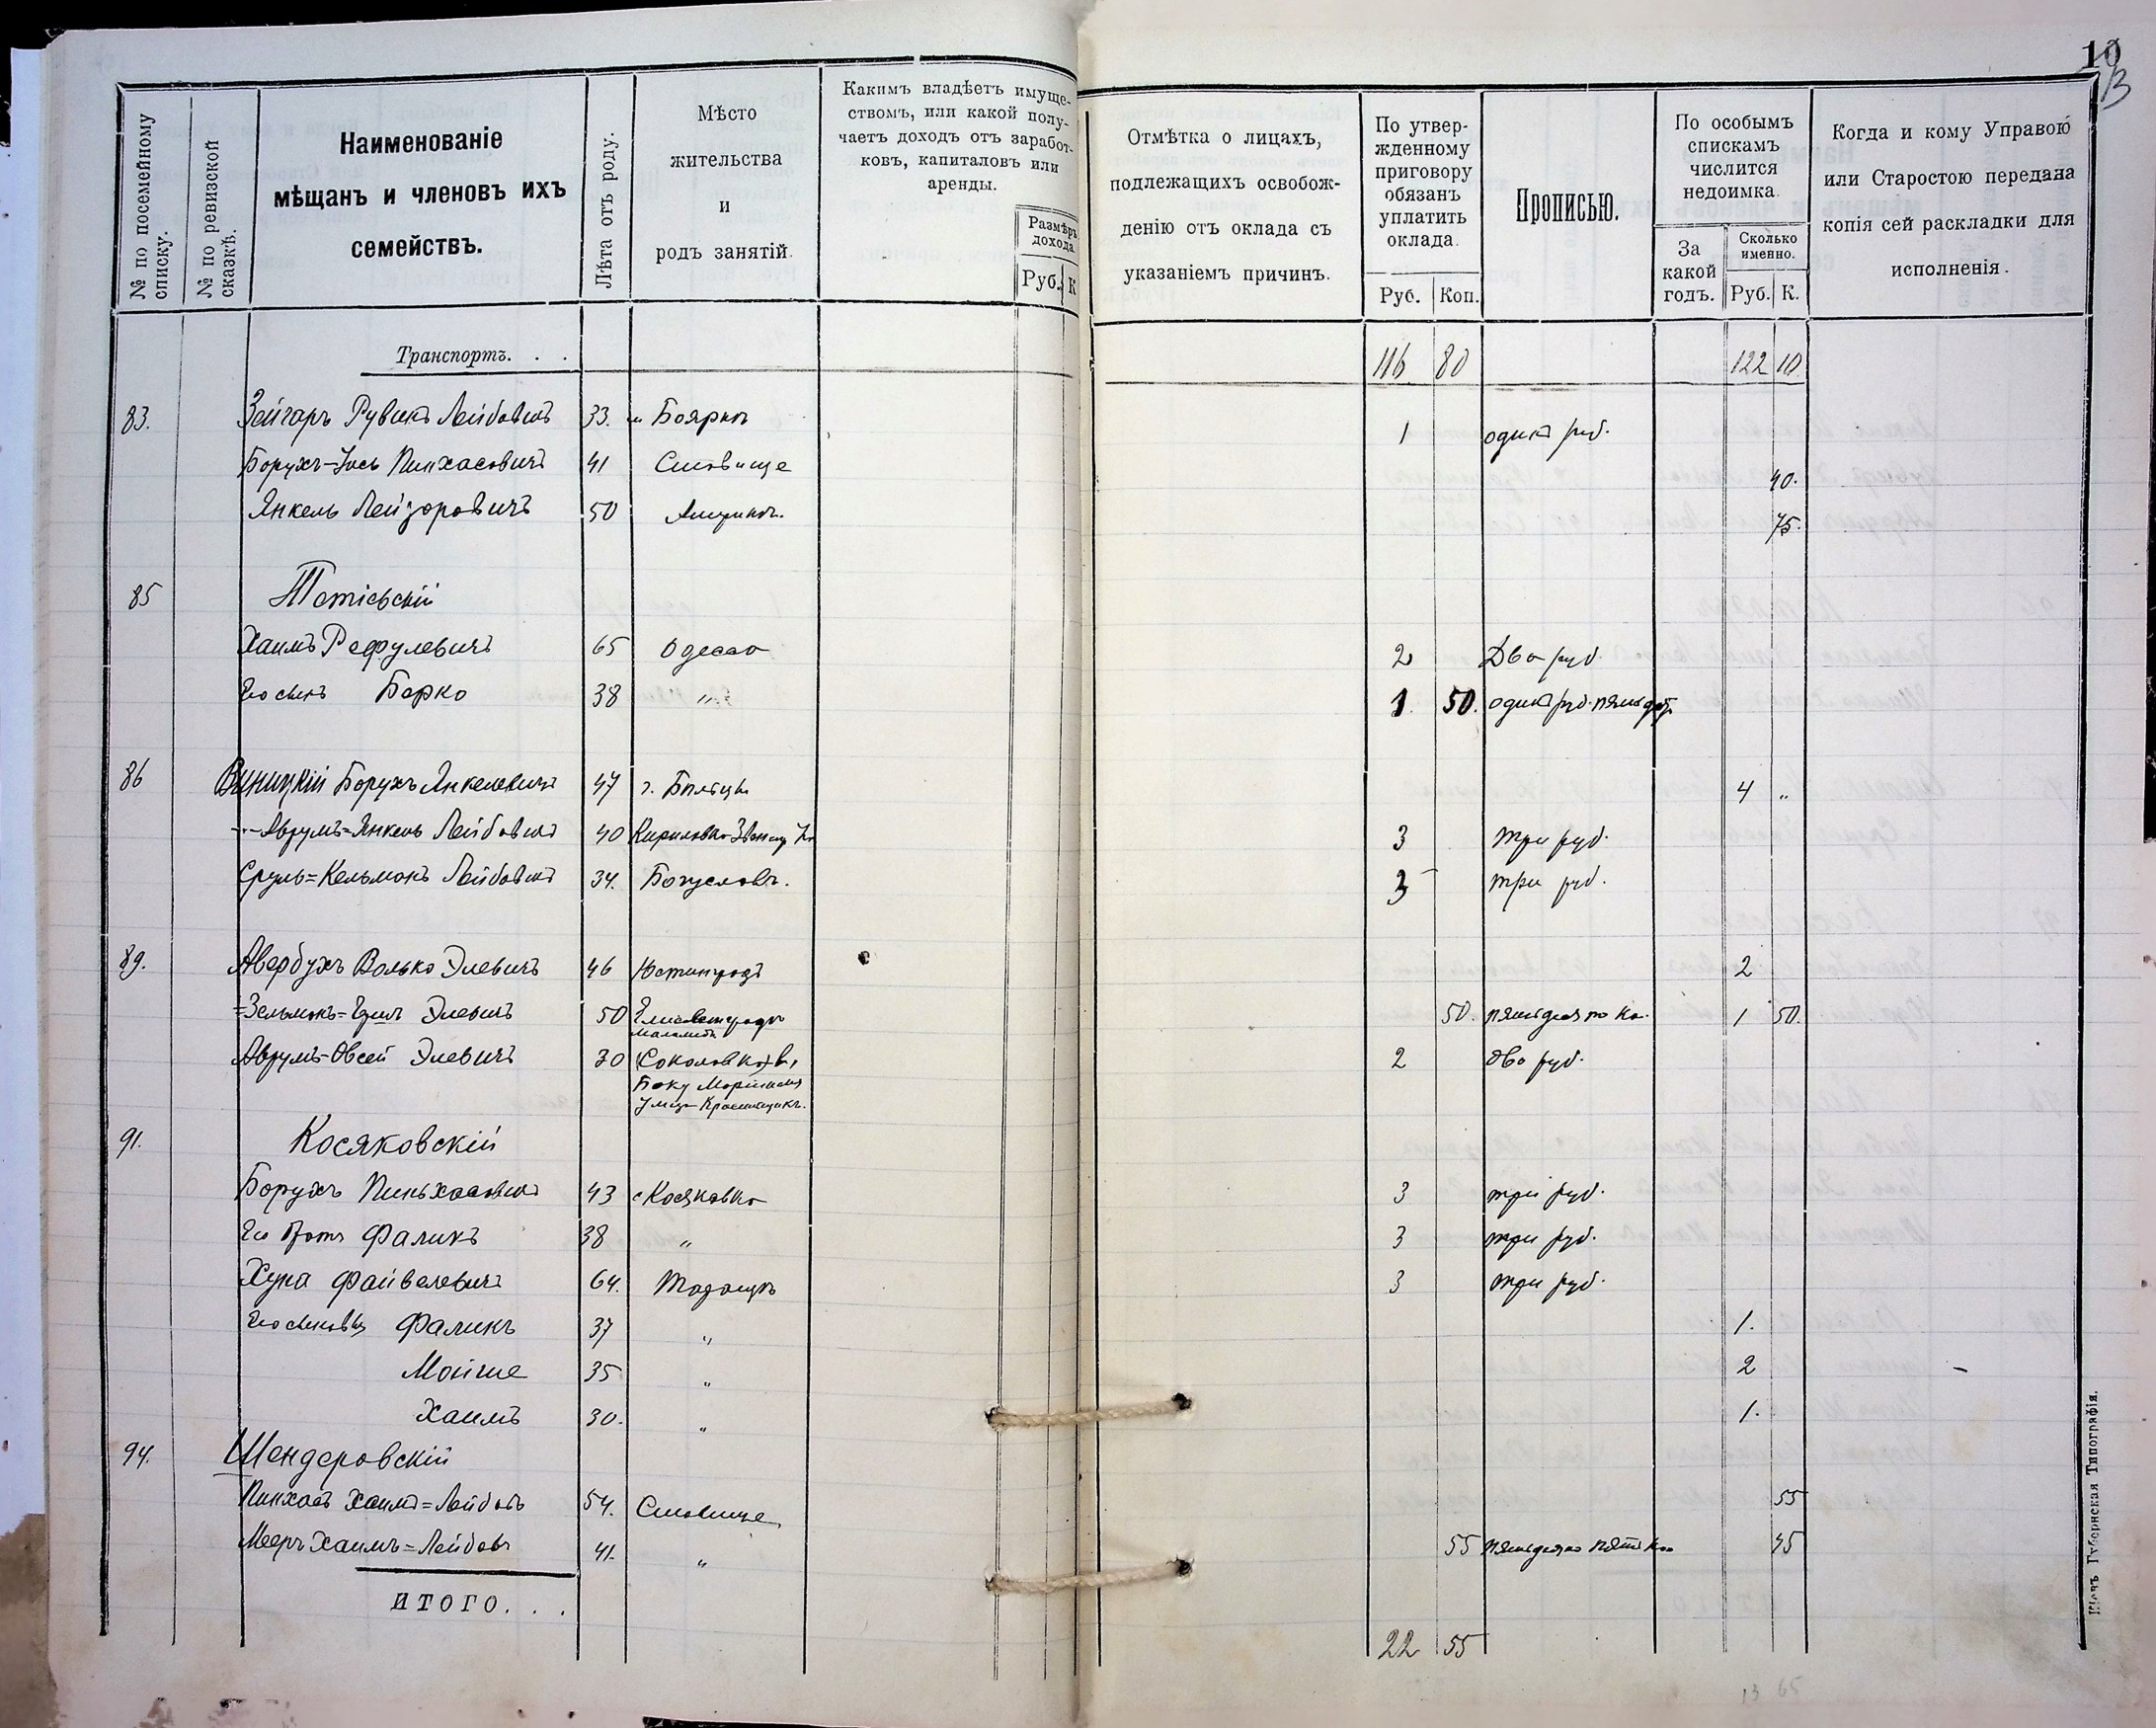 10
13
№ по посемейному списку.
№ по ревизской сказкѣ.
Наименованіе
мѣщанъ и членовъ ихъ
семействъ.
Лѣта отъ роду.
Мѣсто
жительства
и
родъ занятій.
Какимъ владѣетъ имуще-
ствомъ, или какой полу-
чаетъ доходъ отъ заработ-
ковъ, капиталовъ или
аренды.
Размѣръ
дохода
Руб. К
Отмѣтка о лицахъ,
подлежащихъ освобож-
денію отъ оклада съ
указаніемъ причинъ.
По утвер-
жденному
приговору
обязанъ
уплатить
оклада.
Руб. Коп.
Прописью.
По особымъ
спискамъ
числится
недоимка.
За
какой
годъ.
Сколько
именно.
Руб. К.
Когда и кому Управою
или Старостою передана
копія сей раскладки для
исполненія.
Транспортъ. . . 116 80 122 10
83. Зейгаръ Рувинъ Лейбовичъ 33. м Боярка 1 одинъ руб.
Борухъ-Іось Пинхасовичъ 41 40.
Янкель Лейзоровичъ 50 75.
85 Тетіевскій
Хаимъ Рефулевичъ 65 Одесса 2 Два руб.
Его сынъ Берко 38 " 1. 50. одинъ руб. пятьдес.
86 Виницкій Борухъ Янкелевичъ 47 г. Бѣльцы 4 "
Аврумъ=Янкель Лейбовичъ 40 Кириловка Звениг 3 три руб.
Сруль=Кельманъ Лейбовичъ 34. Богуславъ. 3 три руб.
89. Авербухъ Волько Элевичъ 46 Юстинградъ 2
=Зельманъ= Элевичъ 50 Елисаветградъ 50. пятьдесятъ ко. 1 50.
Аврумъ-Овсей Элевичъ 30 (Соколовка) 2 два руб.
Баку
91. Косяковскій
Борухъ Пиньхасовичъ 43 с Косяковка 3 три руб.
Его братъ Фаликъ 38 " 3 три руб.
Хуна Файвелевичъ 64. 3 три руб.
Его сыновья Фаликъ 37 " 1.
Мойше 35 " 2
Хаимъ 30. " 1.
94. Шендеровскій
Пинхасъ Хаимъ=Лейбовъ 54. 55
Мееръ Хаимъ=Лейбовъ 41. " 55 пятьдесятъ пять коп 45
ИТОГО. . .
22 55
13 65
Кіевъ Губернская Типографія.